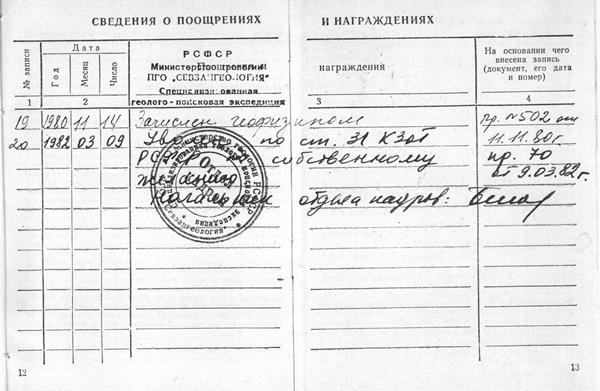 СВЕДЕНИЯ О ПООЩРЕНИЯХ
И НАГРАЖДЕНИЯХ
№ записи
Дата
Год
Месяц
Число
РСФСР
Министерство геологии
ПГО „СЕВЗАПГЕОЛОГИЯ"
Специализированная
геолого-поисковая экспедиция
награждения
На основании чего
внесена запись
(документ, его дата
и номер)
1
2
3
4
19 1980 11 14 Зачислен геофизиком Пр. №502 от
11.11.80г.
20 1982 03 09 по ст. 31 КЗоТ пр. 70
РСФСР собственному от 9.03.82г.
желанию
Начальник отдела кадров:
12
13